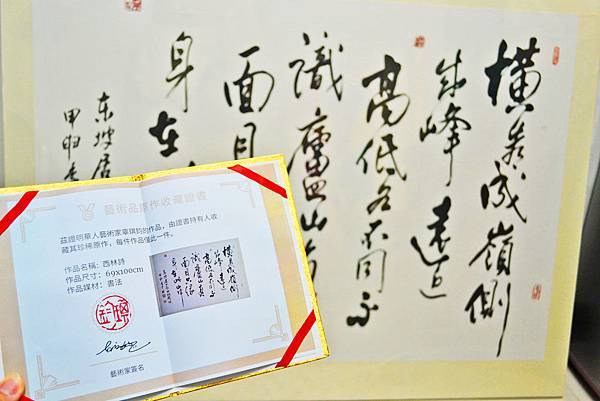 橫看成嶺側
成峰遠近
高低各不同不
識廬山真
面目
身在
东坡居
甲申
藝術品原作收藏證書
茲證明華人藝術家章琪鈞的作品，由證書持有人收
藏其珍稀原作，每件作品僅此一件。
作品名稱：西林詩
作品尺寸：69x100cm
作品媒材：書法
藝術家簽名